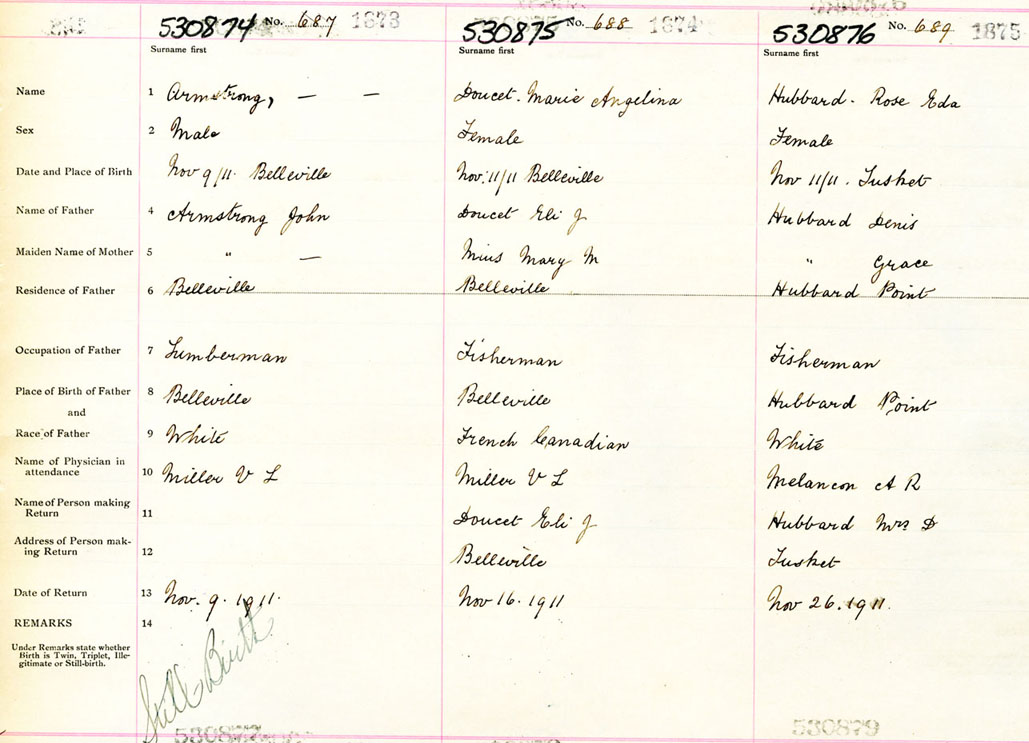 530874 No. 687 1873 530875 No. 688 1874 530876 No. 689 1875
Surname first Surname first Surname first
Name 1 Armstrong, — — Doucet. Marie Angelina Hubbard. Rose Eda
Sex 2 Male Female Female
Date and Place of Birth Nov 9/11. Belleville Nov. 11/11 Belleville Nov 11/11. Tusket
Name of Father 4 Armstrong John Doucet Eli J Hubbard Denis
Maiden Name of Mother 5 " — Mius Mary M " Grace
Residence of Father 6 Belleville Belleville Hubbard Point
Occupation of Father 7 Lumberman Fisherman Fisherman
Place of Birth of Father 8 Belleville Belleville Hubbard Point
and
Race of Father 9 White French Canadian White
Name of Physician in
attendance 10 Miller V L Miller V L Melancon A R
Name of Person making
Return 11 Doucet Eli J Hubbard Mrs D
Address of Person mak-
ing Return 12 Belleville Tusket
Date of Return 13 Nov. 9. 1911. Nov 16. 1911 Nov 26. 1911.
REMARKS 14
Under Remarks state whether
Birth is Twin, Triplet, Ille-
gitimate or Still-birth.
Still Birth
530879